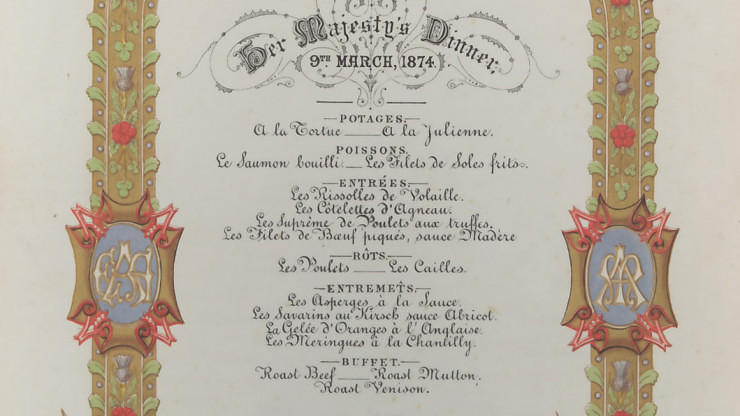 Her Majesty's Dinner.
9TH MARCH, 1874.
POTAGES.
A la Tortue A la Julienne.
POISSONS.
Le Saumon bouilli. Les Filets de Soles frits.
ENTRÉES.
Les Rissoles de Volaille.
Les Côtelettes d'Agneau.
Les Suprême de Poulets aux truffes.
Les Filets de Bœuf piqués, sauce Madère
RÔTS.
Les Poulets Les Cailles.
ENTREMETS.
Les Asperges à la Sauce.
Les Savarins au Kirsch sauce Abricot.
La Gelée d'Oranges à l'Anglaise.
Les Meringues à la Chantilly.
BUFFET.
Roast Beef Roast Mutton.
Roast Venison.